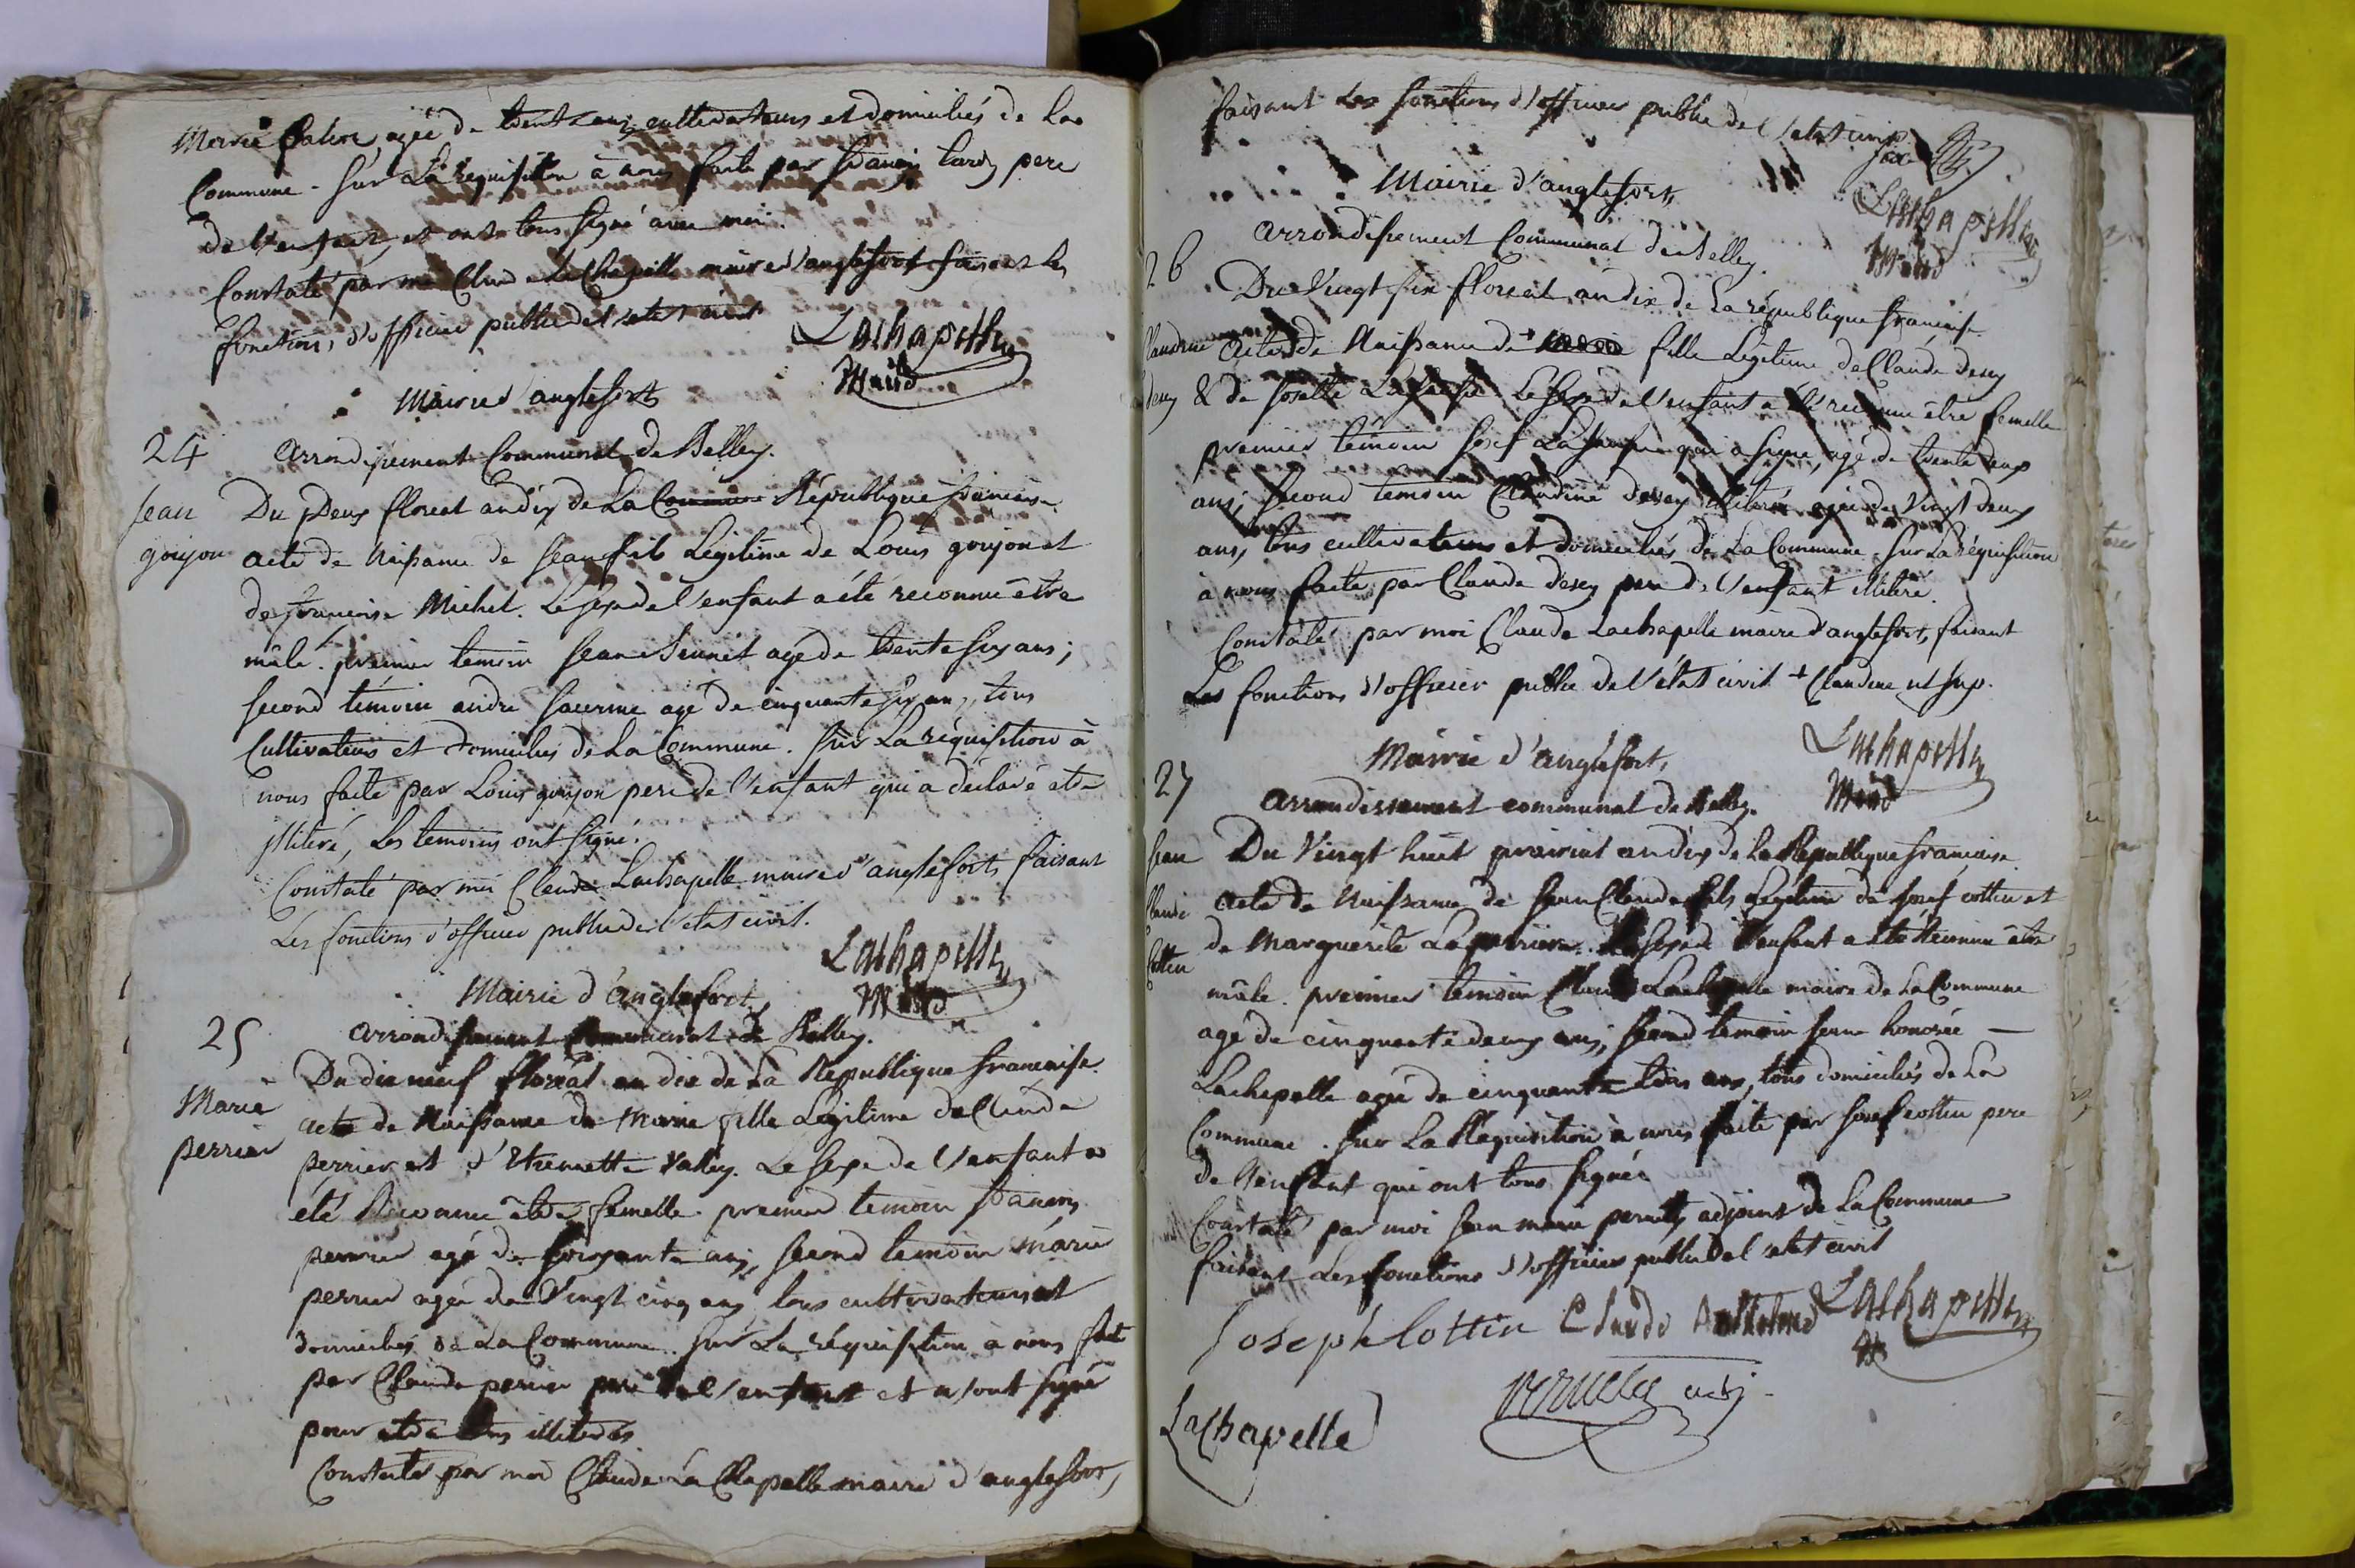 agée de trente ans, cultivateurs et domiciliés de La
Commune. Sur La requisition à nous faite par pere
de l'enfant, et ont tous signé avec moi.
Constaté par moi Claude La Chapelle maire d'anglefort faisant les
fonctions d'officier public de l'etat civil
Lachapelle
Maire
Mairie d'anglefort
24
arrondissement Communal de Belley.
Jean
goujon
Du Deux floreal an dix de La Commune République francaise.
acte de Naissance de Jean fils Légitime de Louis goujon et
de francoise Michel. Le sexe de l'enfant a été reconnu être
mâle. premier temoin Jean agé de trente six ans;
second témoin andré agé de cinquante six ans, tous
Cultivateurs et domiciliés de La Commune. Sur La réquisition à
nous faite par Louis goujon pere de l'enfant qui a déclaré etre
illiteré, Les temoins ont signé.
Constaté par moi Claude Lachapelle maire d'anglefort, faisant
Les fonctions d'officier public de l'etat civil.
Lachapelle
Maire
Mairie d'anglefort,
25
arrondissement Communal de Belley.
Marie
perrier
Du dix neuf floréal an dix de La République francaise.
acte de Naissance de Marie fille Légitime de Claude
perrier et d'Etiennette Vallin. Le sexe de l'enfant a
été Reconnu être femelle. premier temoin
perrier agé de soixante ans, second temoin Marie
perrier agée de Vingt cinq ans tous cultivateurs et
domiciliés de La Commune. Sur La réquisition a nous fait
par Claude perrier pere de l'enfant et n'ont signé
pour etre tous illiterés
Constaté par moi Claude La Chapelle maire d'anglefort,
faisant Les fonctions d'officier public de l'etat civil
Lachapelle
Maire
Mairie d'anglefort,
arrondissement Communal de Belley.
26
Claudine
Du Vingt six floreal an dix de La république francaise
acte de Naissance de + fille Légitime de Claude
& de Josette Le sexe de l'enfant a été reconnu être femelle
premier témoin Josef qui a signé, agé de trente deux
ans, second temoin Claudine illiteré agée de Vingt deux
ans, tous cultivateurs et domiciliés de La Commune. Sur La réquisition
à nous faite par Claude pere de l'enfant illiteré.
Constaté par moi Claude Lachapelle maire d'anglefort, faisant
Les fonctions d'officier public de l'état civil + Claudine ut sup.
Lachapelle
Maire
Mairie d'anglefort,
27
arrondissement communal de Belley.
Jean
Claude
Cottin
Du Vingt huit prairial an dix de La République francaise
acte de Naissance de Jean Claude fils Légitime de Josef cottin et
de Marguerite Laperriere. Le sexe de l'enfant a été Reconnu être
mâle. premier temoin Claude Lachapelle maire de La Commune
agé de cinquante deux ans, second temoin honorée
Lachapelle agée de cinquante trois ans, tous domiciliés de La
Commune. Sur La Réquisition à nous faite par Josef cottin pere
de l'enfant qui ont tous signés
Constaté par moi Jean marie adjoint de La Commune
faisant Les fonctions d'officier public de l'etat civil
Joseph Cottin Claude Lachapelle
adj.
Lachapelle